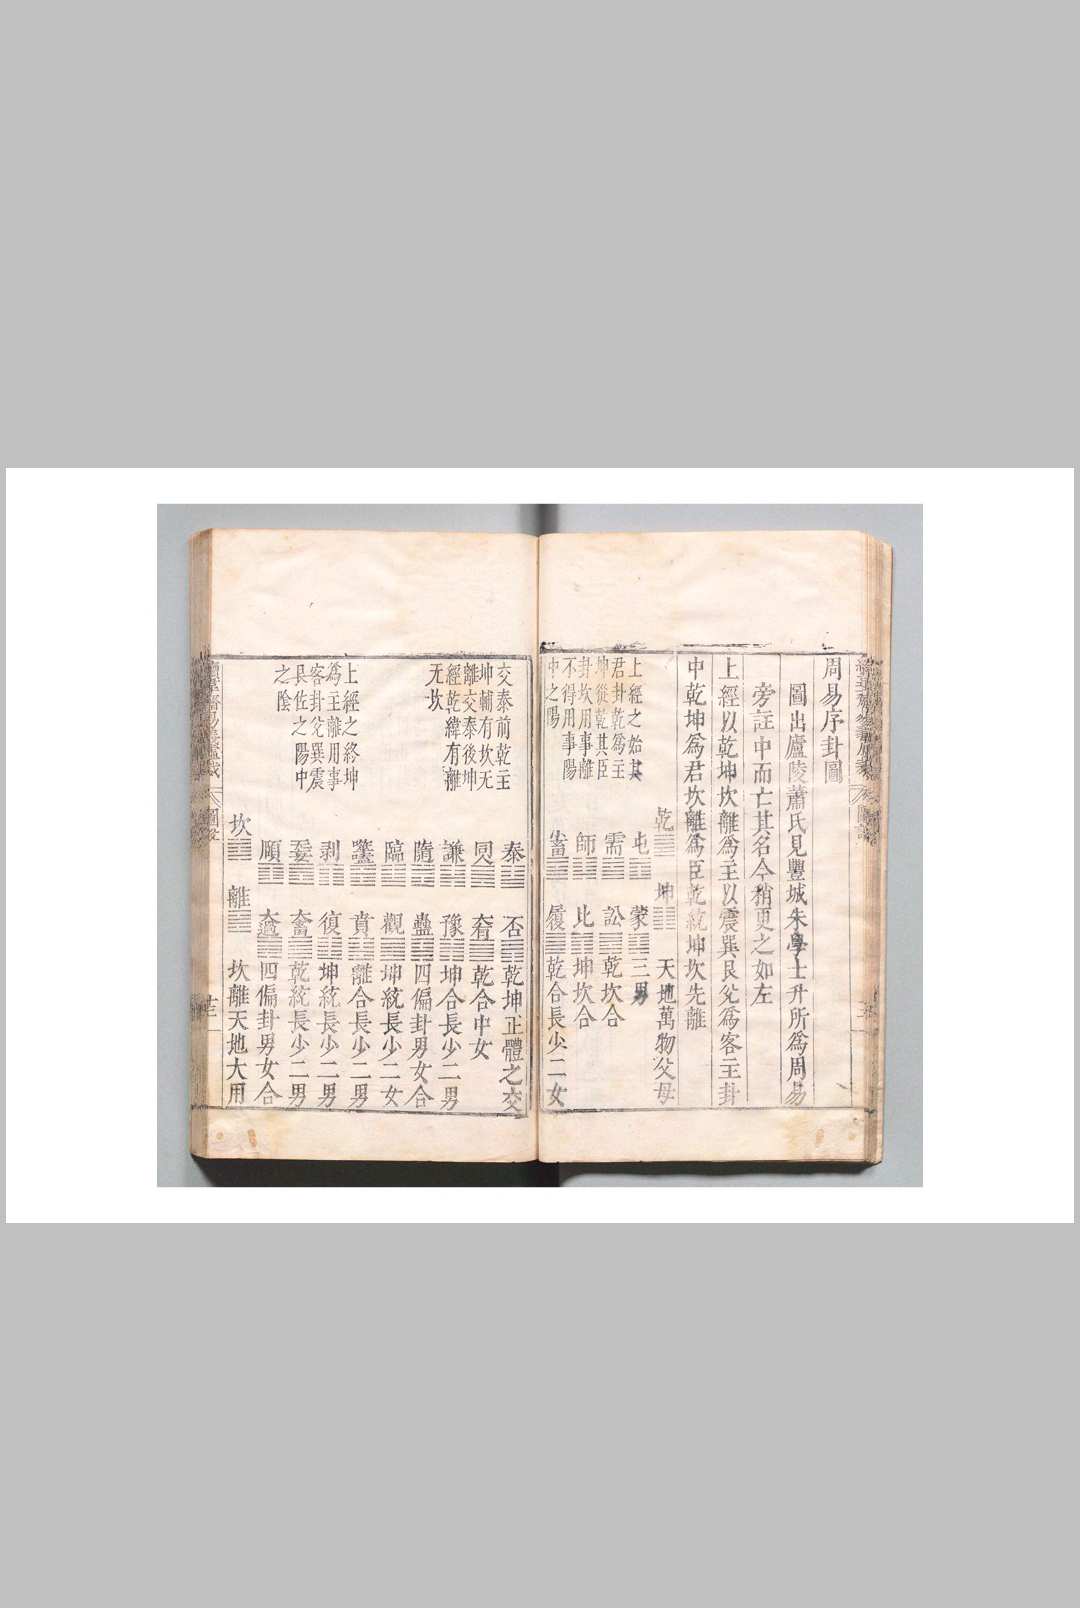 周易序卦圖
圖出廬陵蕭氏見豐城朱學士升所爲周易
旁註中而亡其名今稍更之如左
上經以乾坤坎離爲主以震巽艮兊爲客主卦
中乾坤爲君坎離爲臣乾統坤坎先離
乾 坤 天地萬物父母
上經之始其
君卦乾爲主
坤從乾其臣
卦坎用事離
不得用事陽
中之陽
屯 蒙 三男
需 訟 乾坎合
師 比 坤坎合
畜 履 乾合長少二女
交泰前乾主
坤輔有坎无
離交泰後坤
經乾緯有離
无坎
泰 否 乾坤正體之交
同 大有 乾合中女
謙 豫 坤合長少二男
隨 蠱 四偏卦男女合
臨 觀 坤統長少二女
噬嗑 賁 離合長少二男
剥 復 坤統長少二男
无妄 大畜 乾統長少二男
頤 大過 四偏卦男女合
上經之終坤
爲主離用事
客卦兊巽震
艮佐之陽中
之陰
坎 離 坎離天地大用
圖說